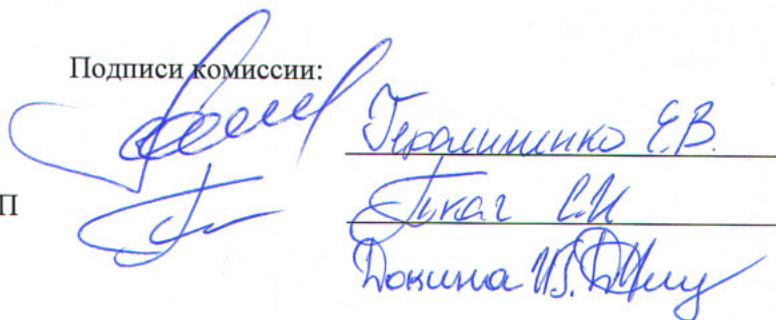 Подписи комиссии:
Герамименко Е.В.
П Ткач С.И
Докина И.В.